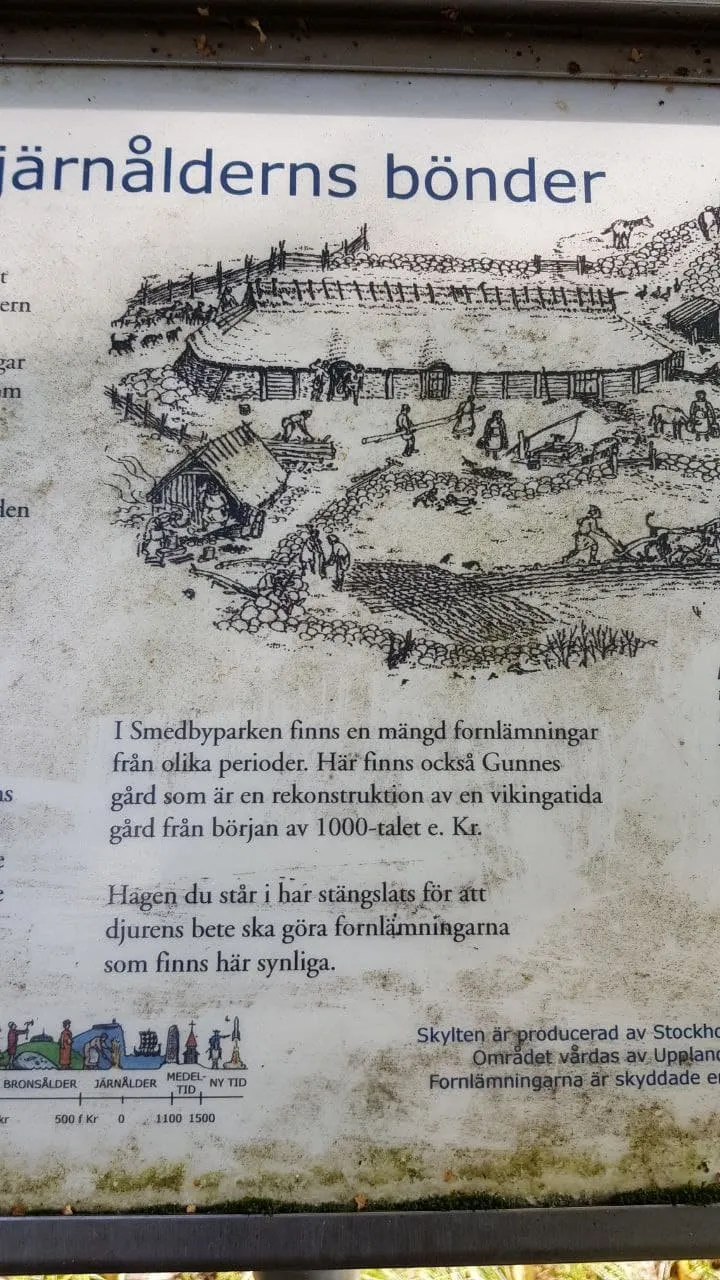 järnålderns bönder
t
ern
gar
m
den
I Smedbyparken finns en mängd fornlämningar
från olika perioder. Här finns också Gunnes
gård som är en rekonstruktion av en vikingatida
gård från början av 1000-talet e. Kr.
ns
e
e
Hagen du står i har stängslats för att
djurens bete ska göra fornlämningarna
som finns här synliga.
BRONSÅLDER JÄRNÅLDER MEDEL-TID NY TID
kr 500 f Kr 0 1100 1500
Skylten är producerad av Stockho
Området vårdas av Uppland
Fornlämningarna är skyddade en